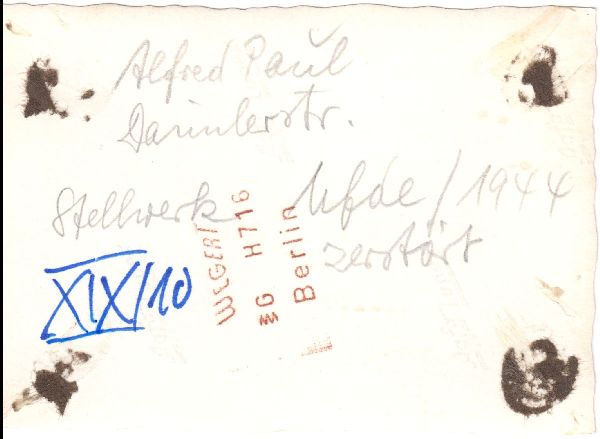 Alfred Paul
Daimlerstr.
Stellwerk Ufde/1944
zerstört
XIX/10
WEGERT
G H716
Berlin